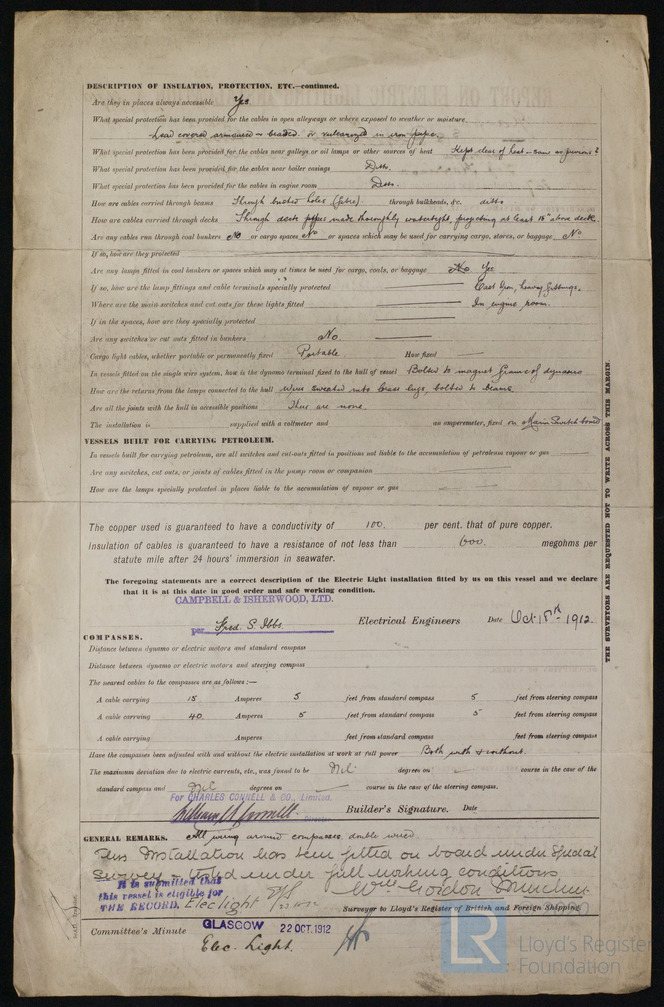 DESCRIPTION OF INSULATION, PROTECTION, ETC.—continued.
Are they in places always accessible Yes
What special protection has been provided for the cables in open alleyways or where exposed to weather or moisture
Lead covered armoured & braided or vulcanized in iron pipe
What special protection has been provided for the cables near galleys or oil lamps or other sources of heat Kept clear of heat – same as previous
What special protection has been provided for the cables near boiler casings Ditto.
What special protection has been provided for the cables in engine room Ditto.
How are cables carried through beams Through bushed holes (fibre) through bulkheads, &c. ditto
How are cables carried through decks Through deck pipes made thoroughly watertight, projecting at least 18" above deck
Are any cables run through coal bunkers No or cargo spaces No or spaces which may be used for carrying cargo, stores, or baggage No
If so, how are they protected
Are any lamps fitted in coal bunkers or spaces which may at times be used for cargo, coals, or baggage No Yes
If so, how are the lamp fittings and cable terminals specially protected Cast Iron, heavy fittings.
Where are the main switches and cut outs for these lights fitted In engine room.
If in the spaces, how are they specially protected
Are any switches or cut outs fitted in bunkers No
Cargo light cables, whether portable or permanently fixed Portable How fixed
In vessels fitted on the single wire system, how is the dynamo terminal fixed to the hull of vessel Bolted to magnet frame of dynamo
How are the returns from the lamps connected to the hull Wires sweated into brass lugs, bolted to beams
Are all the joints with the hull in accessible positions There are none.
The installation is supplied with a voltmeter and an amperemeter, fixed on Main Switch board
VESSELS BUILT FOR CARRYING PETROLEUM.
In vessels built for carrying petroleum, are all switches and cut-outs fitted in positions not liable to the accumulation of petroleum vapour or gas
Are any switches, cut outs, or joints of cables fitted in the pump room or companion
How are the lamps specially protected in places liable to the accumulation of vapour or gas
The copper used is guaranteed to have a conductivity of 100. per cent. that of pure copper.
Insulation of cables is guaranteed to have a resistance of not less than 600. megohms per
statute mile after 24 hours' immersion in seawater.
The foregoing statements are a correct description of the Electric Light installation fitted by us on this vessel and we declare
that it is at this date in good order and safe working condition.
CAMPBELL & ISHERWOOD, LTD.
per Fred. S. Ibbs. Electrical Engineers Date Oct 18th 1912.
COMPASSES.
Distance between dynamo or electric motors and standard compass
Distance between dynamo or electric motors and steering compass
The nearest cables to the compasses are as follows:—
A cable carrying 15 Amperes 5 feet from standard compass 5 feet from steering compass
A cable carrying 40. Amperes 5 feet from standard compass 5 feet from steering compass
A cable carrying Amperes feet from standard compass feet from steering compass
Have the compasses been adjusted with and without the electric installation at work at full power Both with & without.
The maximum deviation due to electric currents, etc., was found to be Nil degrees on course in the case of the
standard compass and Nil degrees on course in the case of the steering compass.
For CHARLES CONNELL & CO., Limited.
William Connell. Director Builder's Signature. Date
GENERAL REMARKS. All wiring around compasses double wired
This Installation has been fitted on board under Special
Survey & tested under full working conditions
It is submitted that
this vessel is eligible for
THE RECORD. Elec light
Wm Gordon
Surveyor to Lloyd's Register of British and Foreign Shipping.
Committee's Minute GLASGOW 22 OCT. 1912
Elec. Light.
THE SURVEYORS ARE REQUESTED NOT TO WRITE ACROSS THIS MARGIN.
LR
Lloyd's Register
Foundation